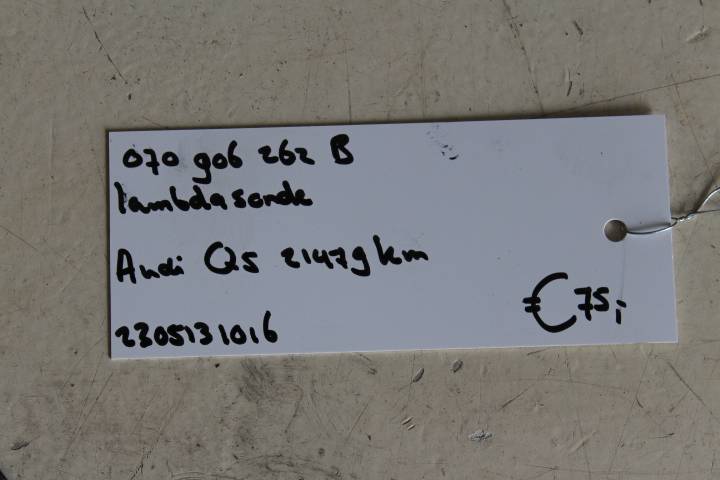 070 906 262 B
lambdasonde
Audi Q5 21479km
2305131016
€75,-